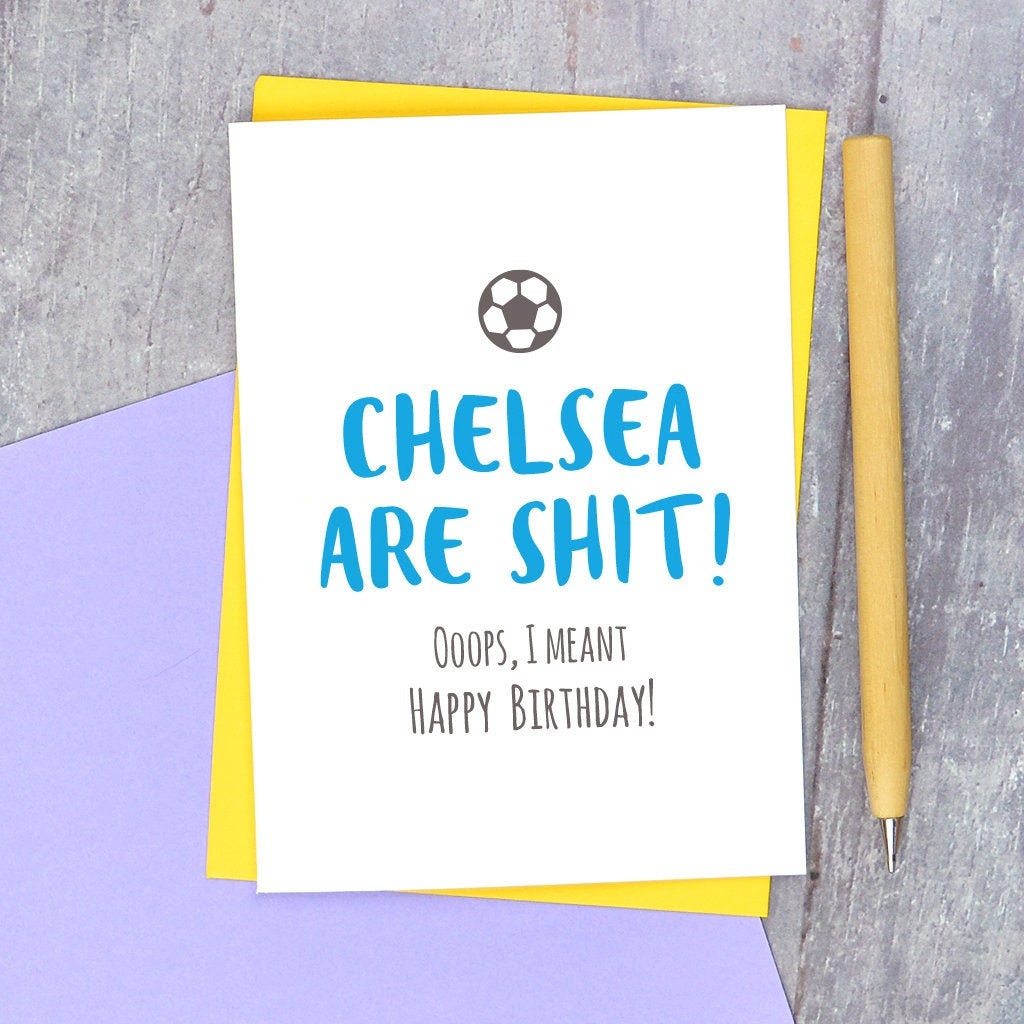 CHELSEA
ARE SHIT!
Ooops, I MEANT
HAPPY BIRTHDAY!